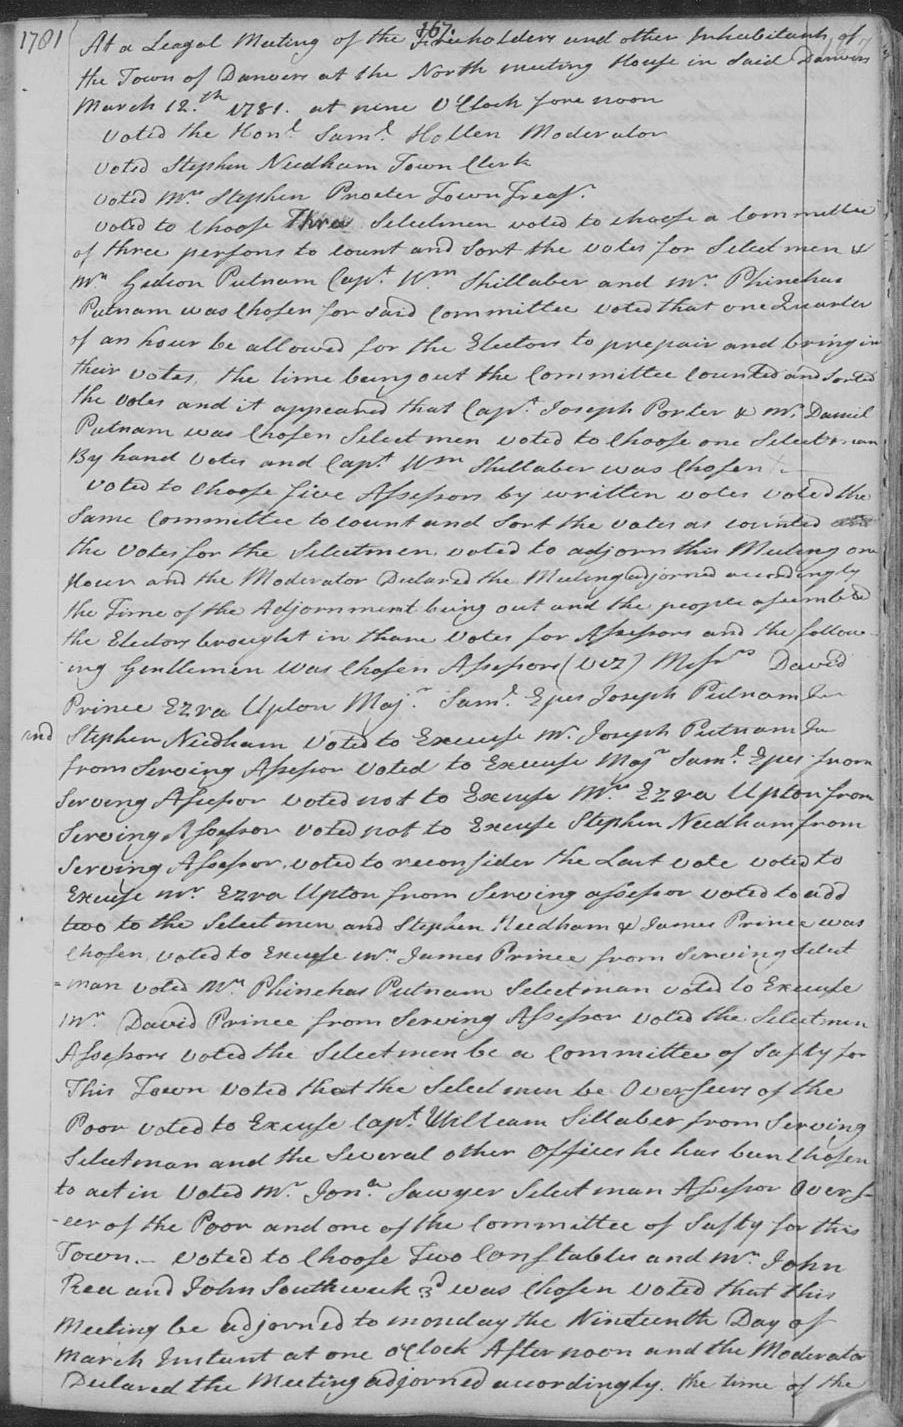 167.
1781 At a Leagal Meeting of the Freeholders and other Inhabitants of
the Town of Danvers at the North meeting House in Said Danvers
March 12.th 1781. at nine O'Clock fore noon
Voted the Honl. Saml. Holten Moderator
Voted Stephen Needham Town Clerk
Voted Mr. Stephen Procter Town Treasr.
Voted to Choose Three Selectmen voted to choose a Committee
of three persons to count and Sort the votes for Selectmen &
Mr. Gideon Putnam Capt. Wm. Shillaber and Mr. Phinehas
Putnam was Chosen for said Committee voted that one Quarter
of an hour be allowed for the Electors to prepair and bring in
their votes, the time being out the Committee Counted and Sorted
the votes and it appeared that Capt. Joseph Porter & Mr. Daniel
Putnam was Chosen Selectmen voted to Choose one Selectman
By hand Votes and Capt. Wm. Shillaber was Chosen
Voted to Choose five Assessors by written votes voted the
Same Committee to count and Sort the votes as counted
the Votes for the Selectmen, voted to adjorn this Meeting one
Hour and the Moderator Declared the Meeting adjorned accordingly
the Time of the Adjornment being out and the people assembled
the Electors brought in thare Votes for Assessors and the follow-
ing Gentlemen was Chosen Assessors (viz) Messrs David
Prince Ezra Upton Majr. Saml. Epes Joseph Putnam Jur
and Stephen Needham Voted to Excuse Mr. Joseph Putnam Jur
from Serving Assessor Voted to Excuse Majr Saml. Epes from
Serving Assessor voted not to Excuse Mr. Ezra Upton from
Serving Assessor voted not to Excuse Stephen Needham from
Serving Assessor, voted to reconsider the Last vote voted to
Excuse Mr. Ezra Upton from Serving assessor voted to add
two to the Selectmen and Stephen Needham & James Prince was
Chosen, voted to Excuse Mr. James Prince from Serving Select
=man voted Mr. Phinehas Putnam Selectman voted to Excuse
Mr. David Prince from Serving Assessor voted the Selectmen
Assessors voted the Selectmen be a Committee of Safty for
This Town voted that the Selectmen be Overseers of the
Poor voted to Excuse Capt. William Sillaber from Serving
Selectman and the Several other Offices he has been Chosen
to act in Voted Mr. Jona. Sawyer Selectman Assessor Overs-
-eer of the Poor and one of the Committee of Safty for this
Town.- Voted to Choose Two Constables and Mr. John
Rea and John Southweek 3d was Chosen Voted that this
Meeting be adjorned to monday the Nineteenth Day of
March Instant at one o'Clock After noon and the Moderator
Declared the Meeting adjorned accordingly. the time of the